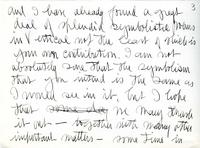 3
and I have already found a great
deal of splendid symbolistic poems
in Vertical not the least of which is
your own contribution. I am not
absolutely sure that the symbolism
that you intend is the same as
I would see in it, but I hope
that we may thrash
it out — together with many other
important matters — some time in